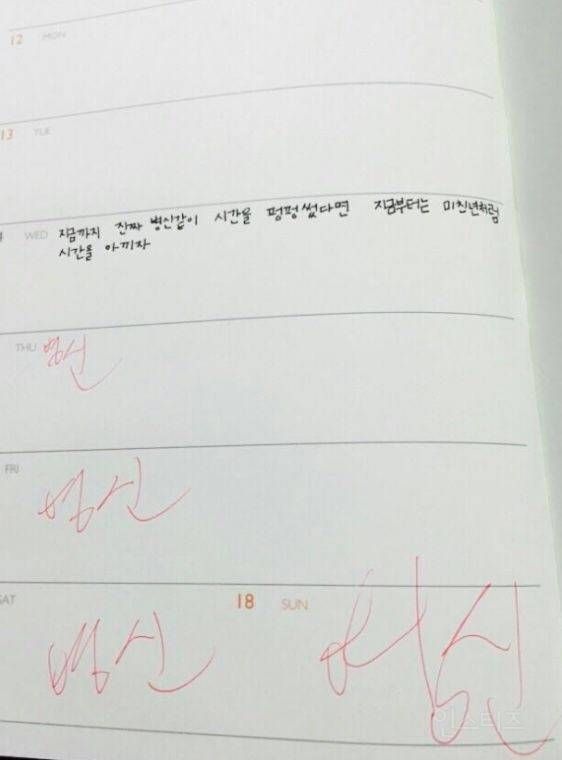 12 MON
13 TUE
WED 지금까지 진짜 병신같이 시간을 펑펑 썼다면 지금부터는 미친년처럼
시간을 아끼자
THU 병신
FRI 병신
SAT 병신
18 SUN 병신
인스티즈